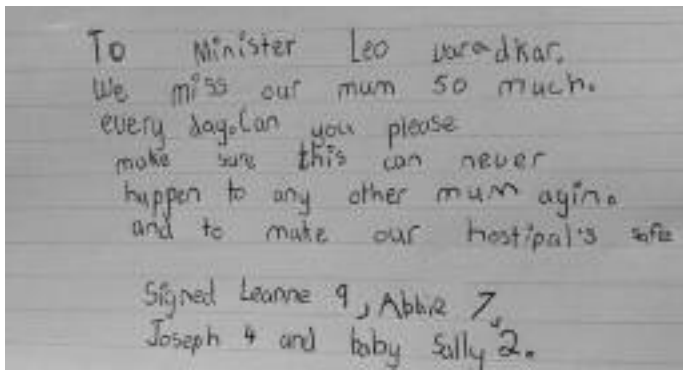 To Minister Leo varadkar.
We miss our mum so much.
every day.Can you please
make sure this can never
happen to any other mum agin.
and to make our hostipal's safe
Signed Leanne 9, Abbie 7,
Joseph 4 and baby Sally 2.